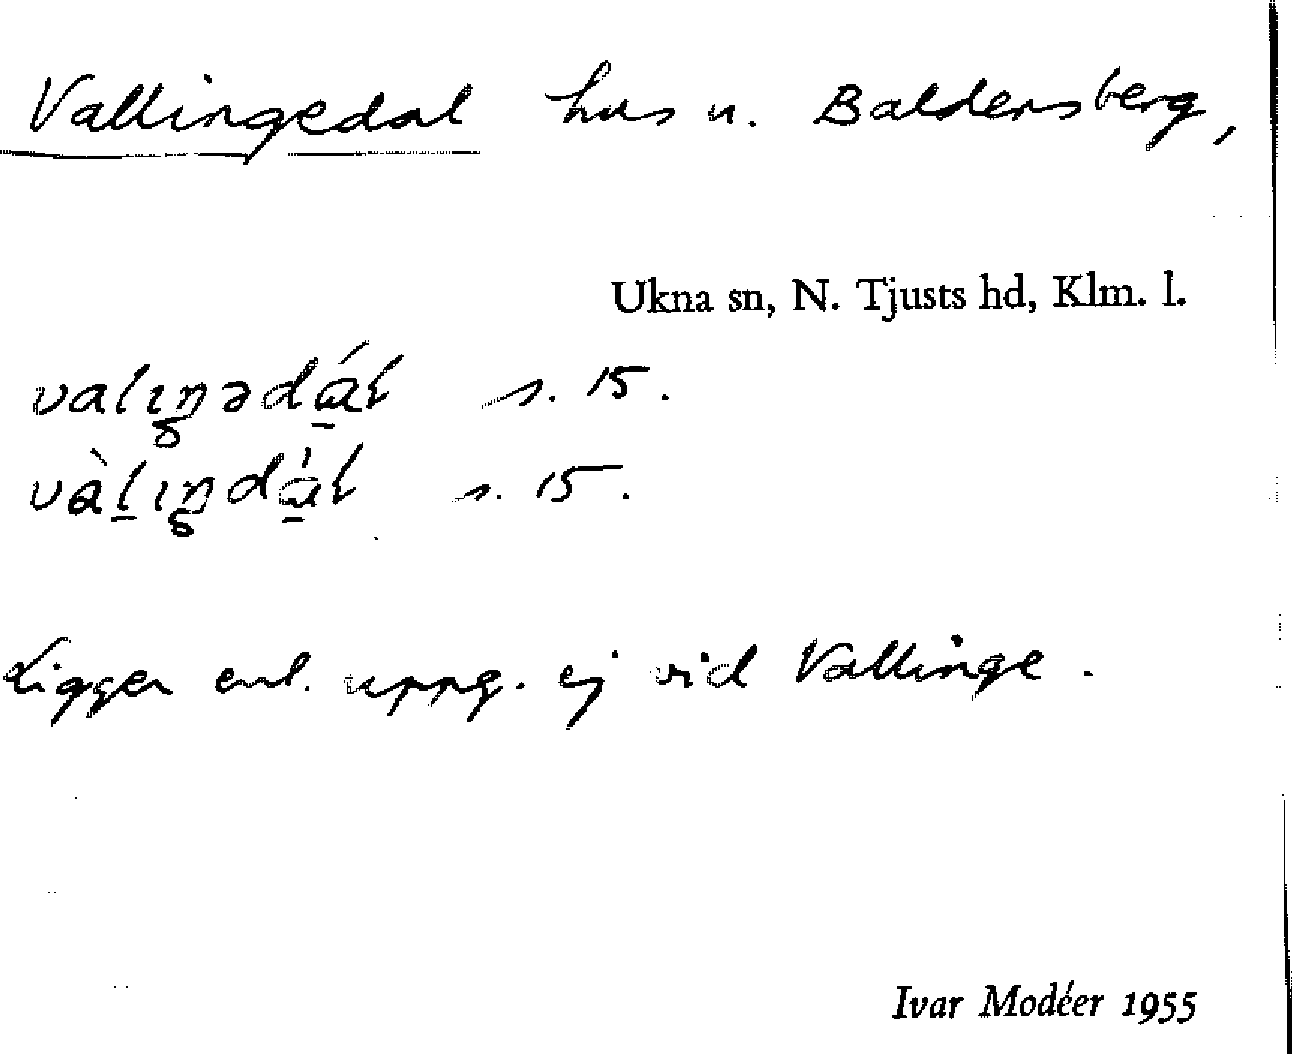 Vallingedal hus u. Baldersberg,
Ukna sn, N. Tjusts hd, Klm. l.
valıŋədá̱l s. 15.
vàḻıŋdá̱l s. 15.
Ligger enl. uppg. ej vid Vallinge.
Ivar Modéer 1955